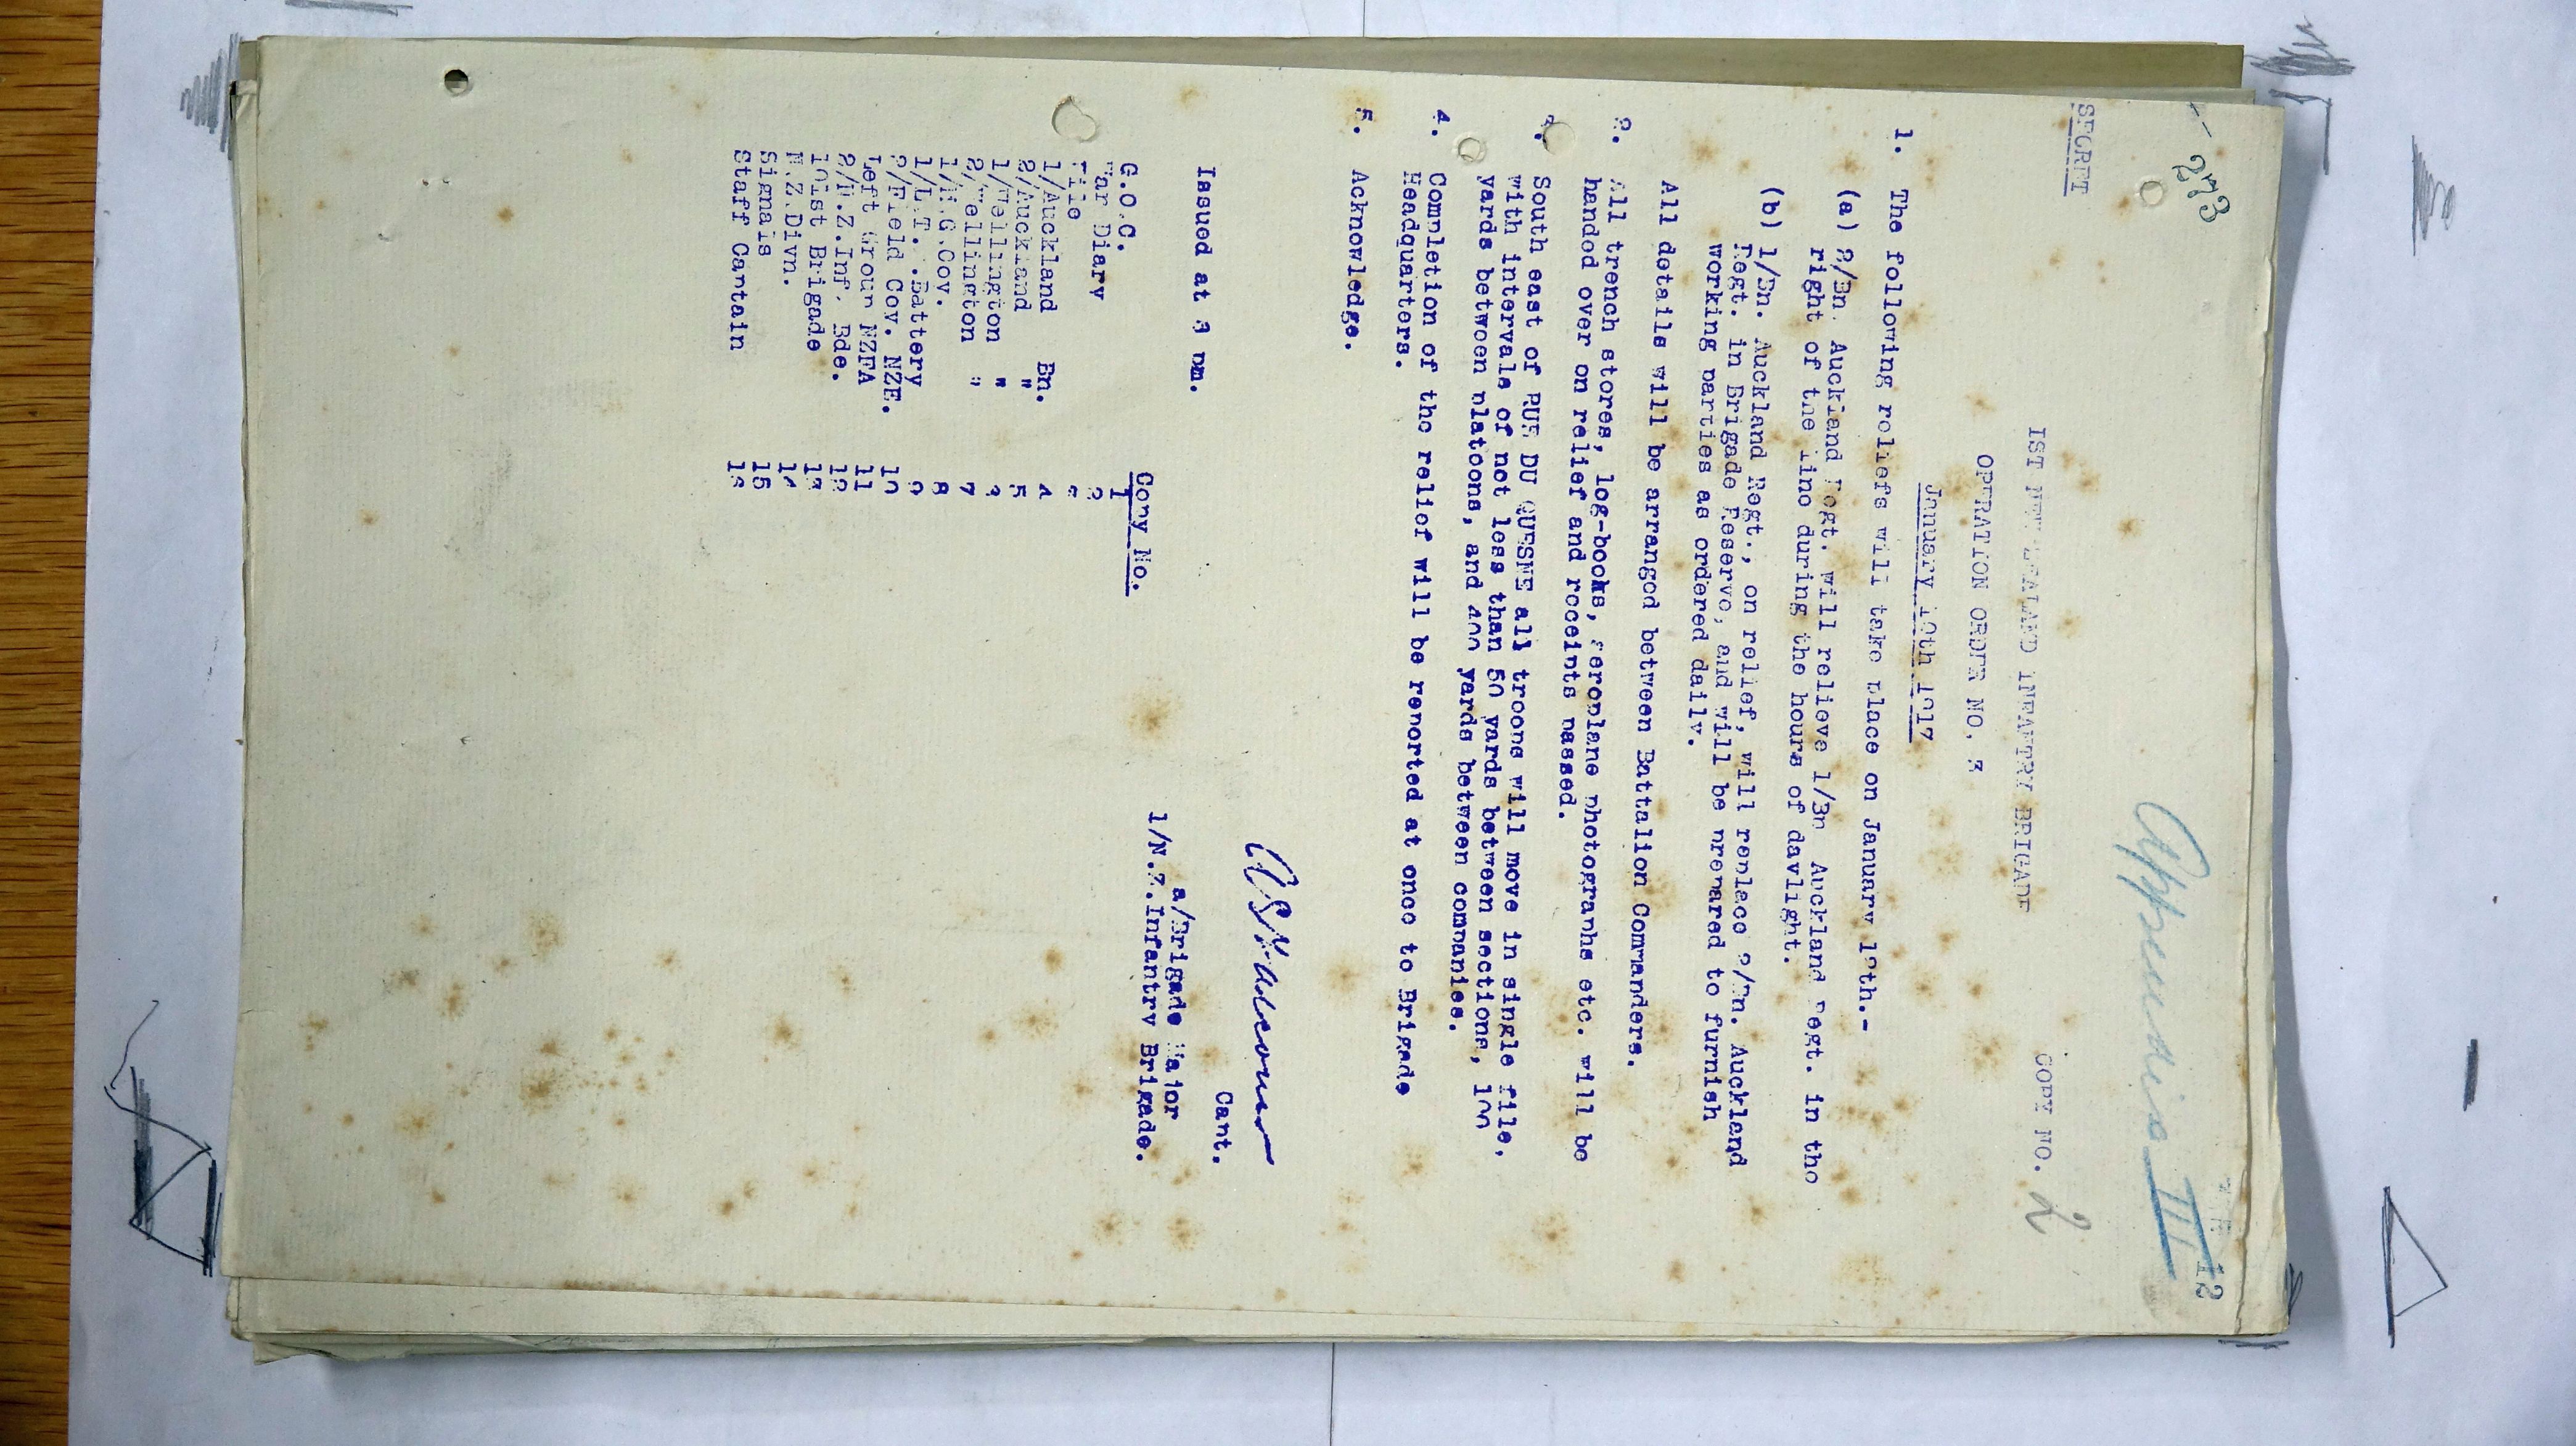 273
Appendix III
12
SECRET
COPY NO. 2
IST NEW ZEALAND INFANTRY BRIGADE
OPERATION ORDER NO. 3
January 10th 1917
1. The following reliefs will take place on January 12th.-
(a) 2/Bn. Auckland Regt. will relieve 1/Bn Auckland Regt. in the
right of the line during the hours of daylight.
(b) 1/Bn. Auckland Regt., on relief, will replace 2/Bn. Auckland
Regt. in Brigade Reserve, and will be prepared to furnish
working parties as ordered daily.
All details will be arranged between Battalion Commanders.
2. All trench stores, log-books, aeroplane photographs etc. will be
handed over on relief and receipts passed.
South east of RUE DU QUESNE all troops will move in single file,
with intervals of not less than 50 yards between sections, 100
yards between platoons, and 400 yards between companies.
4. Completion of the relief will be reported at once to Brigade
Headquarters.
5. Acknowledge.
Capt.
a/Brigade Major
1/N.Z.Infantry Brigade.
Issued at 8 pm.
Copy No.
G.O.C. 1
War Diary 2
File 3
1/Auckland Bn. 4
2/Auckland " 5
1/Wellington " 6
2/Wellington " 7
1/M.G.Coy. 8
1/L.T. .Battery 9
2/Field Coy. NZE. 10
Left Group NZFA 11
2/N.Z.Inf. Bde. 12
101st Brigade 13
N.Z.Divn. 14
Signals 15
Staff Captain 16